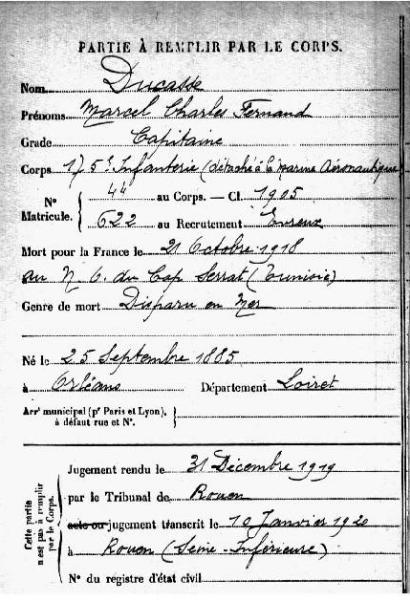 PARTIE À REMPLIR PAR LE CORPS.
Nom Ducasse
Prénoms Marcel Charles Fernand
Grade Capitaine
Corps 175e Infanterie (détaché à la Marine Aéronautique)
N° Matricule. { 44 au Corps. — Cl. 1905
622 au Recrutement Evreux
Mort pour la France le 21 Octobre 1918
au N. O. du Cap Serrat (Tunisie)
Genre de mort Disparu en Mer
Né le 25 Septembre 1885
à Orléans Département Loiret
Arrt municipal (pr Paris et Lyon), à défaut rue et N°.
Cette partie n'est pas à remplir par le Corps.
Jugement rendu le 31 Décembre 1919
par le Tribunal de Rouen
acte ou jugement transcrit le 10 Janvier 1920
à Rouen (Seine-Inférieure)
N° du registre d'état civil